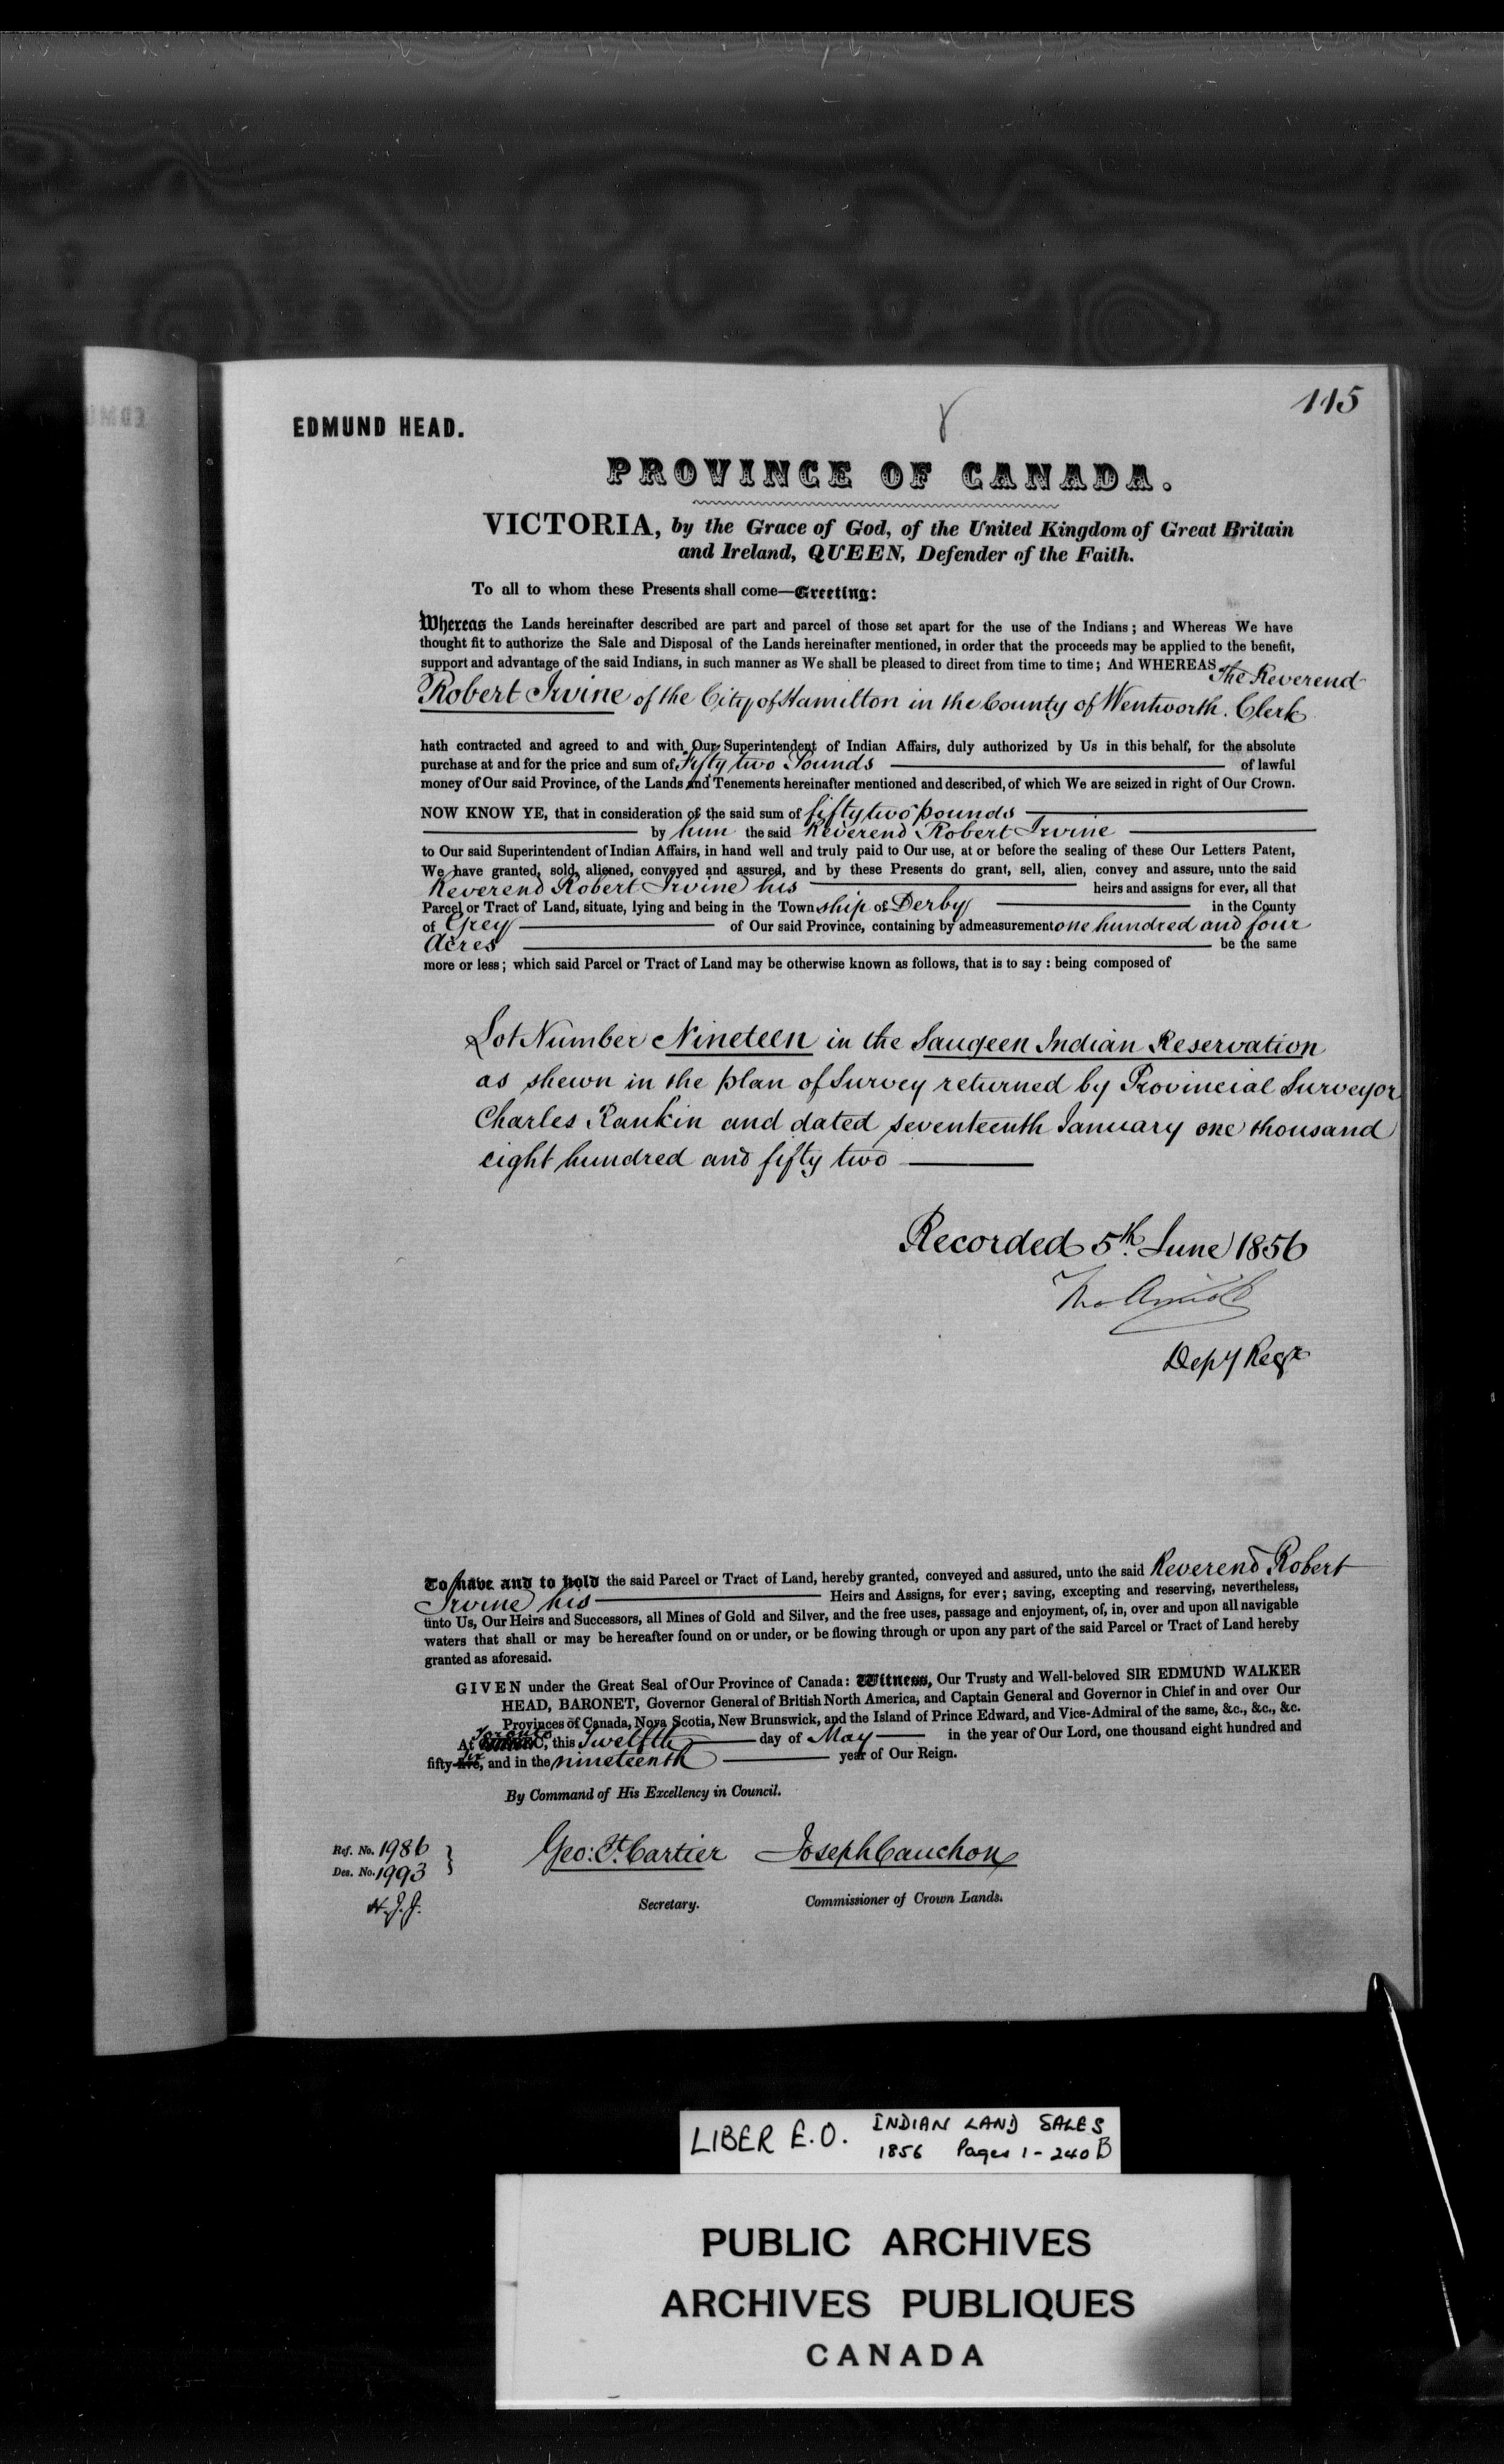 115
EDMUND HEAD.
PROVINCE OF CANADA.
VICTORIA, by the Grace of God, of the United Kingdom of Great Britain
and Ireland, QUEEN, Defender of the Faith.
To all to whom these Presents shall come—Greeting:
Whereas the Lands hereinafter described are part and parcel of those set apart for the use of the Indians; and Whereas We have
thought fit to authorize the Sale and Disposal of the Lands hereinafter mentioned, in order that the proceeds may be applied to the benefit,
support and advantage of the said Indians, in such manner as We shall be pleased to direct from time to time; And WHEREAS The Reverend
Robert Irvine of the City of Hamilton in the County of Wentworth. Clerk
hath contracted and agreed to and with Our Superintendent of Indian Affairs, duly authorized by Us in this behalf, for the absolute
purchase at and for the price and sum of Fifty two Pounds of lawful
money of Our said Province, of the Lands and Tenements hereinafter mentioned and described, of which We are seized in right of Our Crown.
NOW KNOW YE, that in consideration of the said sum of fifty two pounds
by him the said Reverend Robert Irvine
to Our said Superintendent of Indian Affairs, in hand well and truly paid to Our use, at or before the sealing of these Our Letters Patent,
We have granted, sold, aliened, conveyed and assured, and by these Presents do grant, sell, alien, convey and assure, unto the said
Reverend Robert Irvine his heirs and assigns for ever, all that
Parcel or Tract of Land, situate, lying and being in the Township of Derby in the County
of Grey of Our said Province, containing by admeasurement one hundred and four
Acres be the same
more or less; which said Parcel or Tract of Land may be otherwise known as follows, that is to say: being composed of
Lot Number Nineteen in the Saugeen Indian Reservation
as shewn in the plan of Survey returned by Provincial Surveyor
Charles Rankin and dated seventeenth January one thousand
eight hundred and fifty two
Recorded 5th June 1856
Depy Regr
To have and to hold the said Parcel or Tract of Land, hereby granted, conveyed and assured, unto the said Reverend Robert
Irvine his Heirs and Assigns, for ever; saving, excepting and reserving, nevertheless,
unto Us, Our Heirs and Successors, all Mines of Gold and Silver, and the free uses, passage and enjoyment, of, in, over and upon all navigable
waters that shall or may be hereafter found on or under, or be flowing through or upon any part of the said Parcel or Tract of Land hereby
granted as aforesaid.
GIVEN under the Great Seal of Our Province of Canada: Witness, Our Trusty and Well-beloved SIR EDMUND WALKER
HEAD, BARONET, Governor General of British North America, and Captain General and Governor in Chief in and over Our
Provinces of Canada, Nova Scotia, New Brunswick, and the Island of Prince Edward, and Vice-Admiral of the same, &c., &c., &c.
At Toronto, this Twelfth day of May in the year of Our Lord, one thousand eight hundred and
fifty-six, and in the nineteenth year of Our Reign.
By Command of His Excellency in Council.
Ref. No. 1986
Des. No. 1993
H.J.J.
Geo: Et. Cartier Joseph Cauchon
Secretary. Commissioner of Crown Lands.
LIBER E.O. INDIAN LAND SALES
1856 Pages 1-240B
PUBLIC ARCHIVES
ARCHIVES PUBLIQUES
CANADA